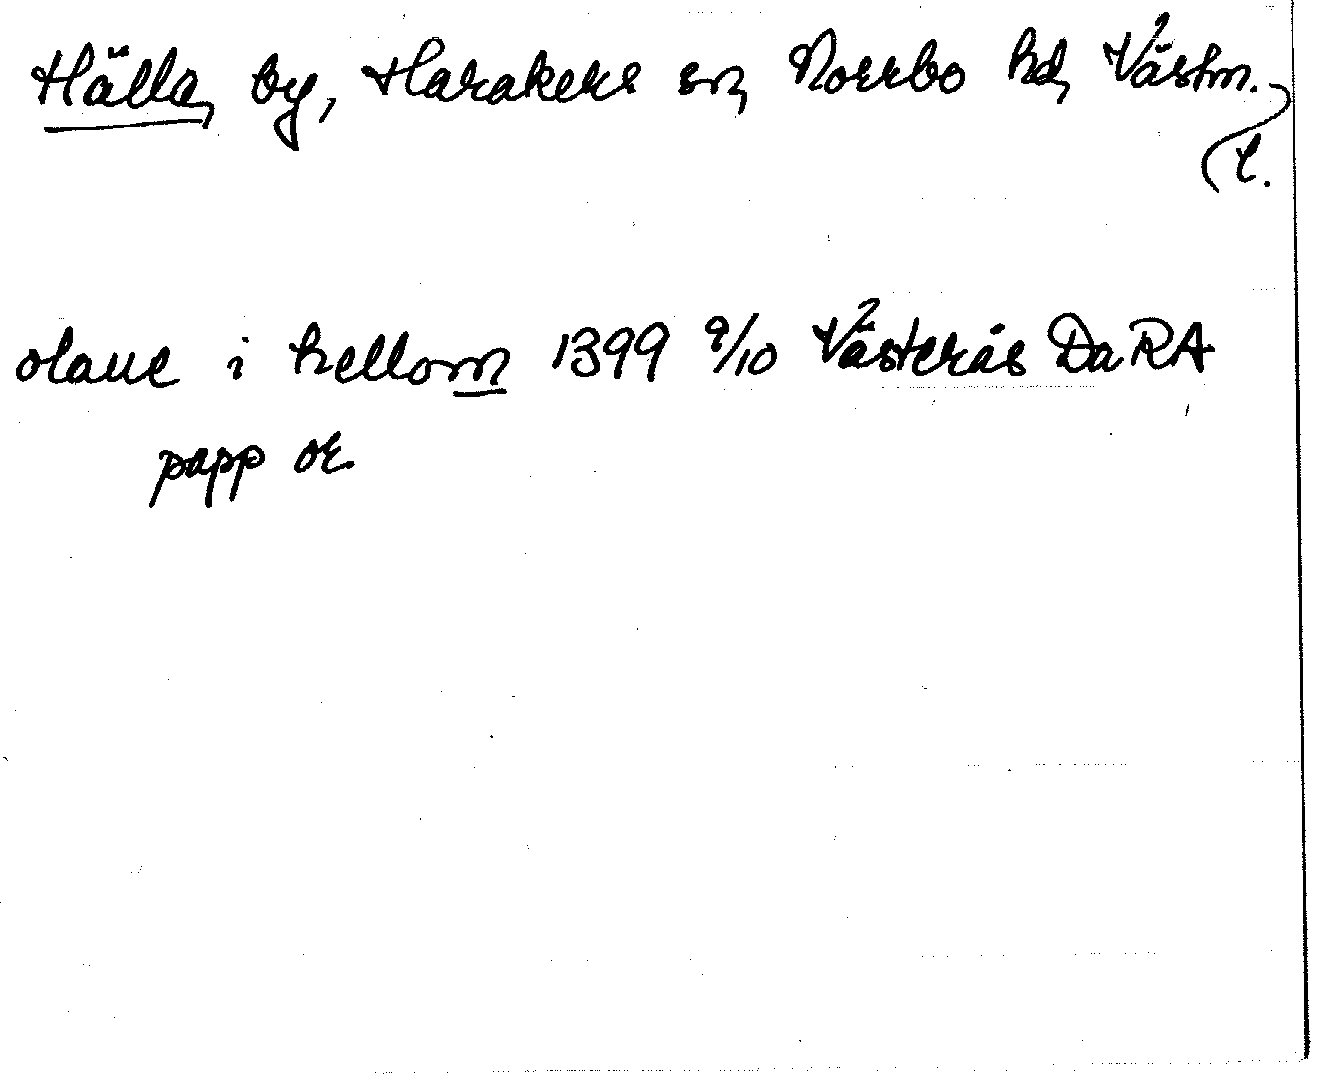 Hälla, by, Harakers sn, Norrbo hd, Västm.
l.
olaue i hellom 1399 9/10 Västerås Da RA
papp or.